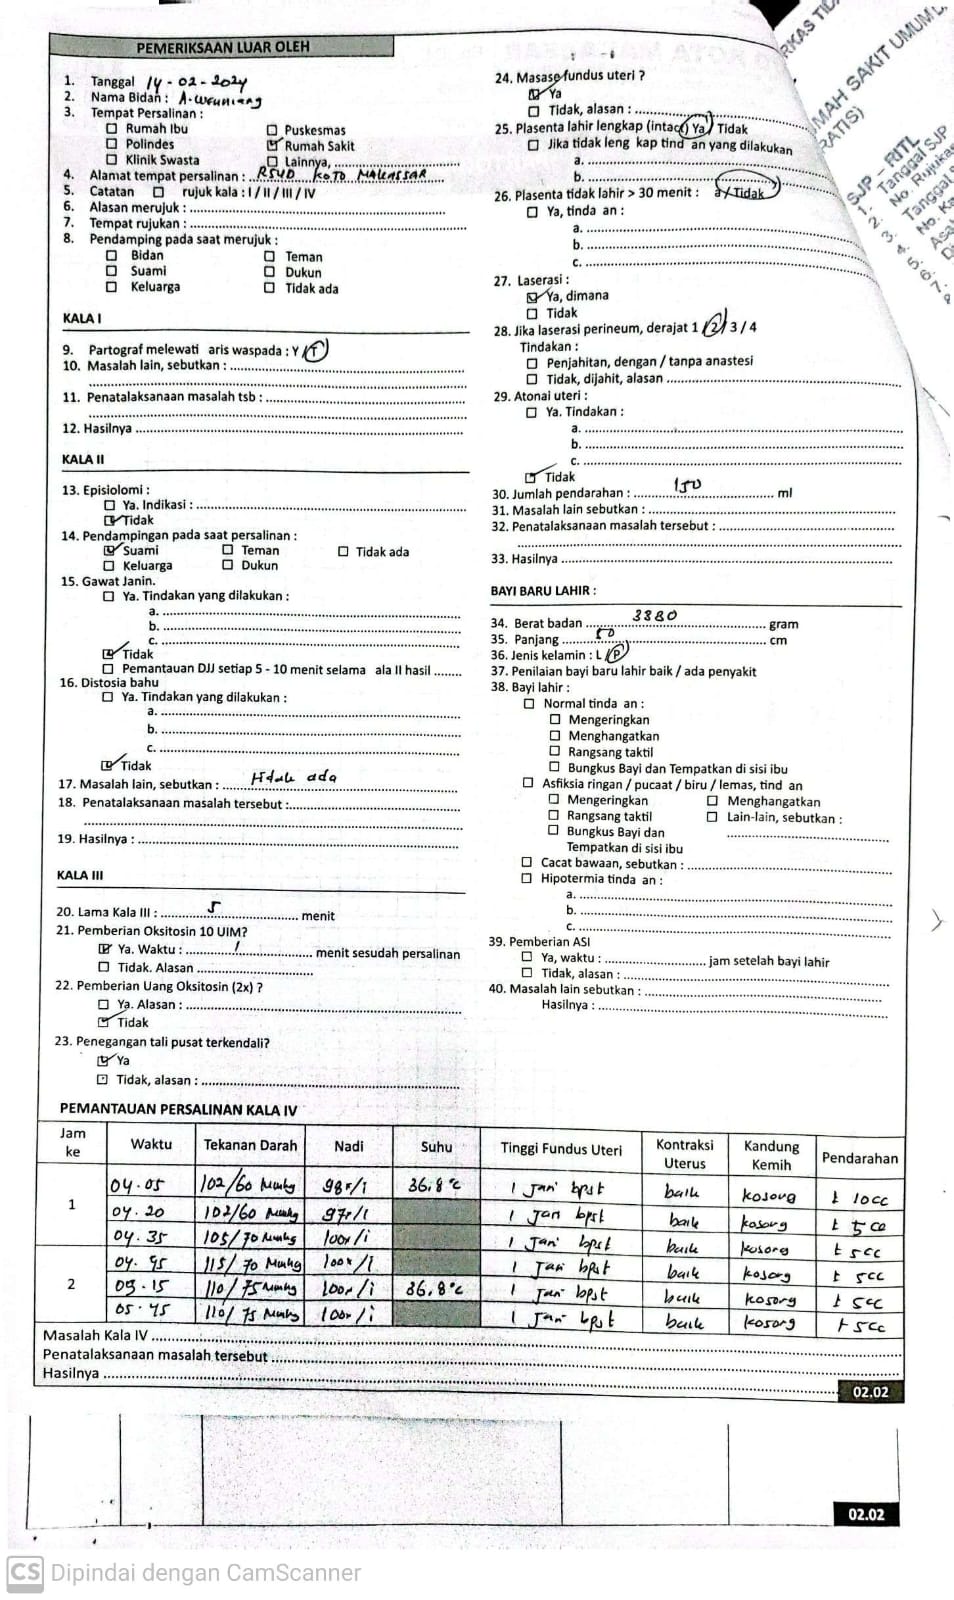 PEMERIKSAAN LUAR OLEH
1. Tanggal 14 - 02 - 2024
2. Nama Bidan :
3. Tempat Persalinan :
Rumah Ibu
Puskesmas
Polindes
Rumah Sakit
Klinik Swasta
Lainnya,
4. Alamat tempat persalinan : RSUD KOTA MAKASSAR
5. Catatan rujuk kala : I / II / III / IV
6. Alasan merujuk :
7. Tempat rujukan :
8. Pendamping pada saat merujuk :
Bidan
Teman
Suami
Dukun
Keluarga
Tidak ada
KALA I
9. Partograf melewati aris waspada : Y / T
10. Masalah lain, sebutkan :
11. Penatalaksanaan masalah tsb :
12. Hasilnya
KALA II
13. Episiolomi :
Ya. Indikasi :
Tidak
14. Pendampingan pada saat persalinan :
Suami
Teman
Tidak ada
Keluarga
Dukun
15. Gawat Janin.
Ya. Tindakan yang dilakukan :
a.
b.
c.
Tidak
Pemantauan DJJ setiap 5 - 10 menit selama ala II hasil
16. Distosia bahu
Ya. Tindakan yang dilakukan :
a.
b.
c.
Tidak
17. Masalah lain, sebutkan : tidak ada
18. Penatalaksanaan masalah tersebut :
19. Hasilnya :
KALA III
20. Lama Kala III : 5 menit
21. Pemberian Oksitosin 10 UIM?
Ya. Waktu : 1 menit sesudah persalinan
Tidak. Alasan
22. Pemberian Uang Oksitosin (2x) ?
Ya. Alasan :
Tidak
23. Penegangan tali pusat terkendali?
Ya
Tidak, alasan :
24. Masase fundus uteri ?
Ya
Tidak, alasan :
25. Plasenta lahir lengkap (intact) Ya / Tidak
Jika tidak leng kap tind an yang dilakukan
a.
b.
26. Plasenta tidak lahir > 30 menit : a / Tidak
Ya, tinda an :
a.
b.
c.
27. Laserasi :
Ya, dimana
Tidak
28. Jika laserasi perineum, derajat 1 / 2 / 3 / 4
Tindakan :
Penjahitan, dengan / tanpa anastesi
Tidak, dijahit, alasan
29. Atonai uteri :
Ya. Tindakan :
a.
b.
c.
Tidak
30. Jumlah pendarahan : 150 ml
31. Masalah lain sebutkan :
32. Penatalaksanaan masalah tersebut :
33. Hasilnya
BAYI BARU LAHIR :
34. Berat badan 3880 gram
35. Panjang 50 cm
36. Jenis kelamin : L / P
37. Penilaian bayi baru lahir baik / ada penyakit
38. Bayi lahir :
Normal tinda an :
Mengeringkan
Menghangatkan
Rangsang taktil
Bungkus Bayi dan Tempatkan di sisi ibu
Asfiksia ringan / pucaat / biru / lemas, tind an
Mengeringkan
Menghangatkan
Rangsang taktil
Lain-lain, sebutkan :
Bungkus Bayi dan
Tempatkan di sisi ibu
Cacat bawaan, sebutkan :
Hipotermia tinda an :
a.
b.
c.
39. Pemberian ASI
Ya, waktu : jam setelah bayi lahir
Tidak, alasan :
40. Masalah lain sebutkan :
Hasilnya :
SJP - RITL
1. Tanggal SJP
2. No. Rujuka
3. Tanggal
4. No. Ka
5. Asa
6.
7.
PEMANTAUAN PERSALINAN KALA IV
Jam ke Waktu Tekanan Darah Nadi Suhu Tinggi Fundus Uteri Kontraksi Uterus Kandung Kemih Pendarahan
1 04.05 102/60 mmHg 98x/i 36,8°c 1 Jari bpst baik kosong ± 10cc
04.20 102/60 mmHg 97x/i 1 Jari bpst baik kosong ± 5cc
04.35 105/70 mmHg 100x/i 1 Jari bpst baik kosong ± 5cc
2 04.45 115/70 mmHg 100x/i 1 Jari bpst baik kosong ± 5cc
05.15 110/75 mmHg 100x/i 36,8°c 1 Jari bpst baik kosong ± 5cc
05.45 110/75 mmHg 100x/i 1 Jari bpst baik kosong ± 5cc
Masalah Kala IV
Penatalaksanaan masalah tersebut
Hasilnya
02.02
02.02
CS Dipindai dengan CamScanner